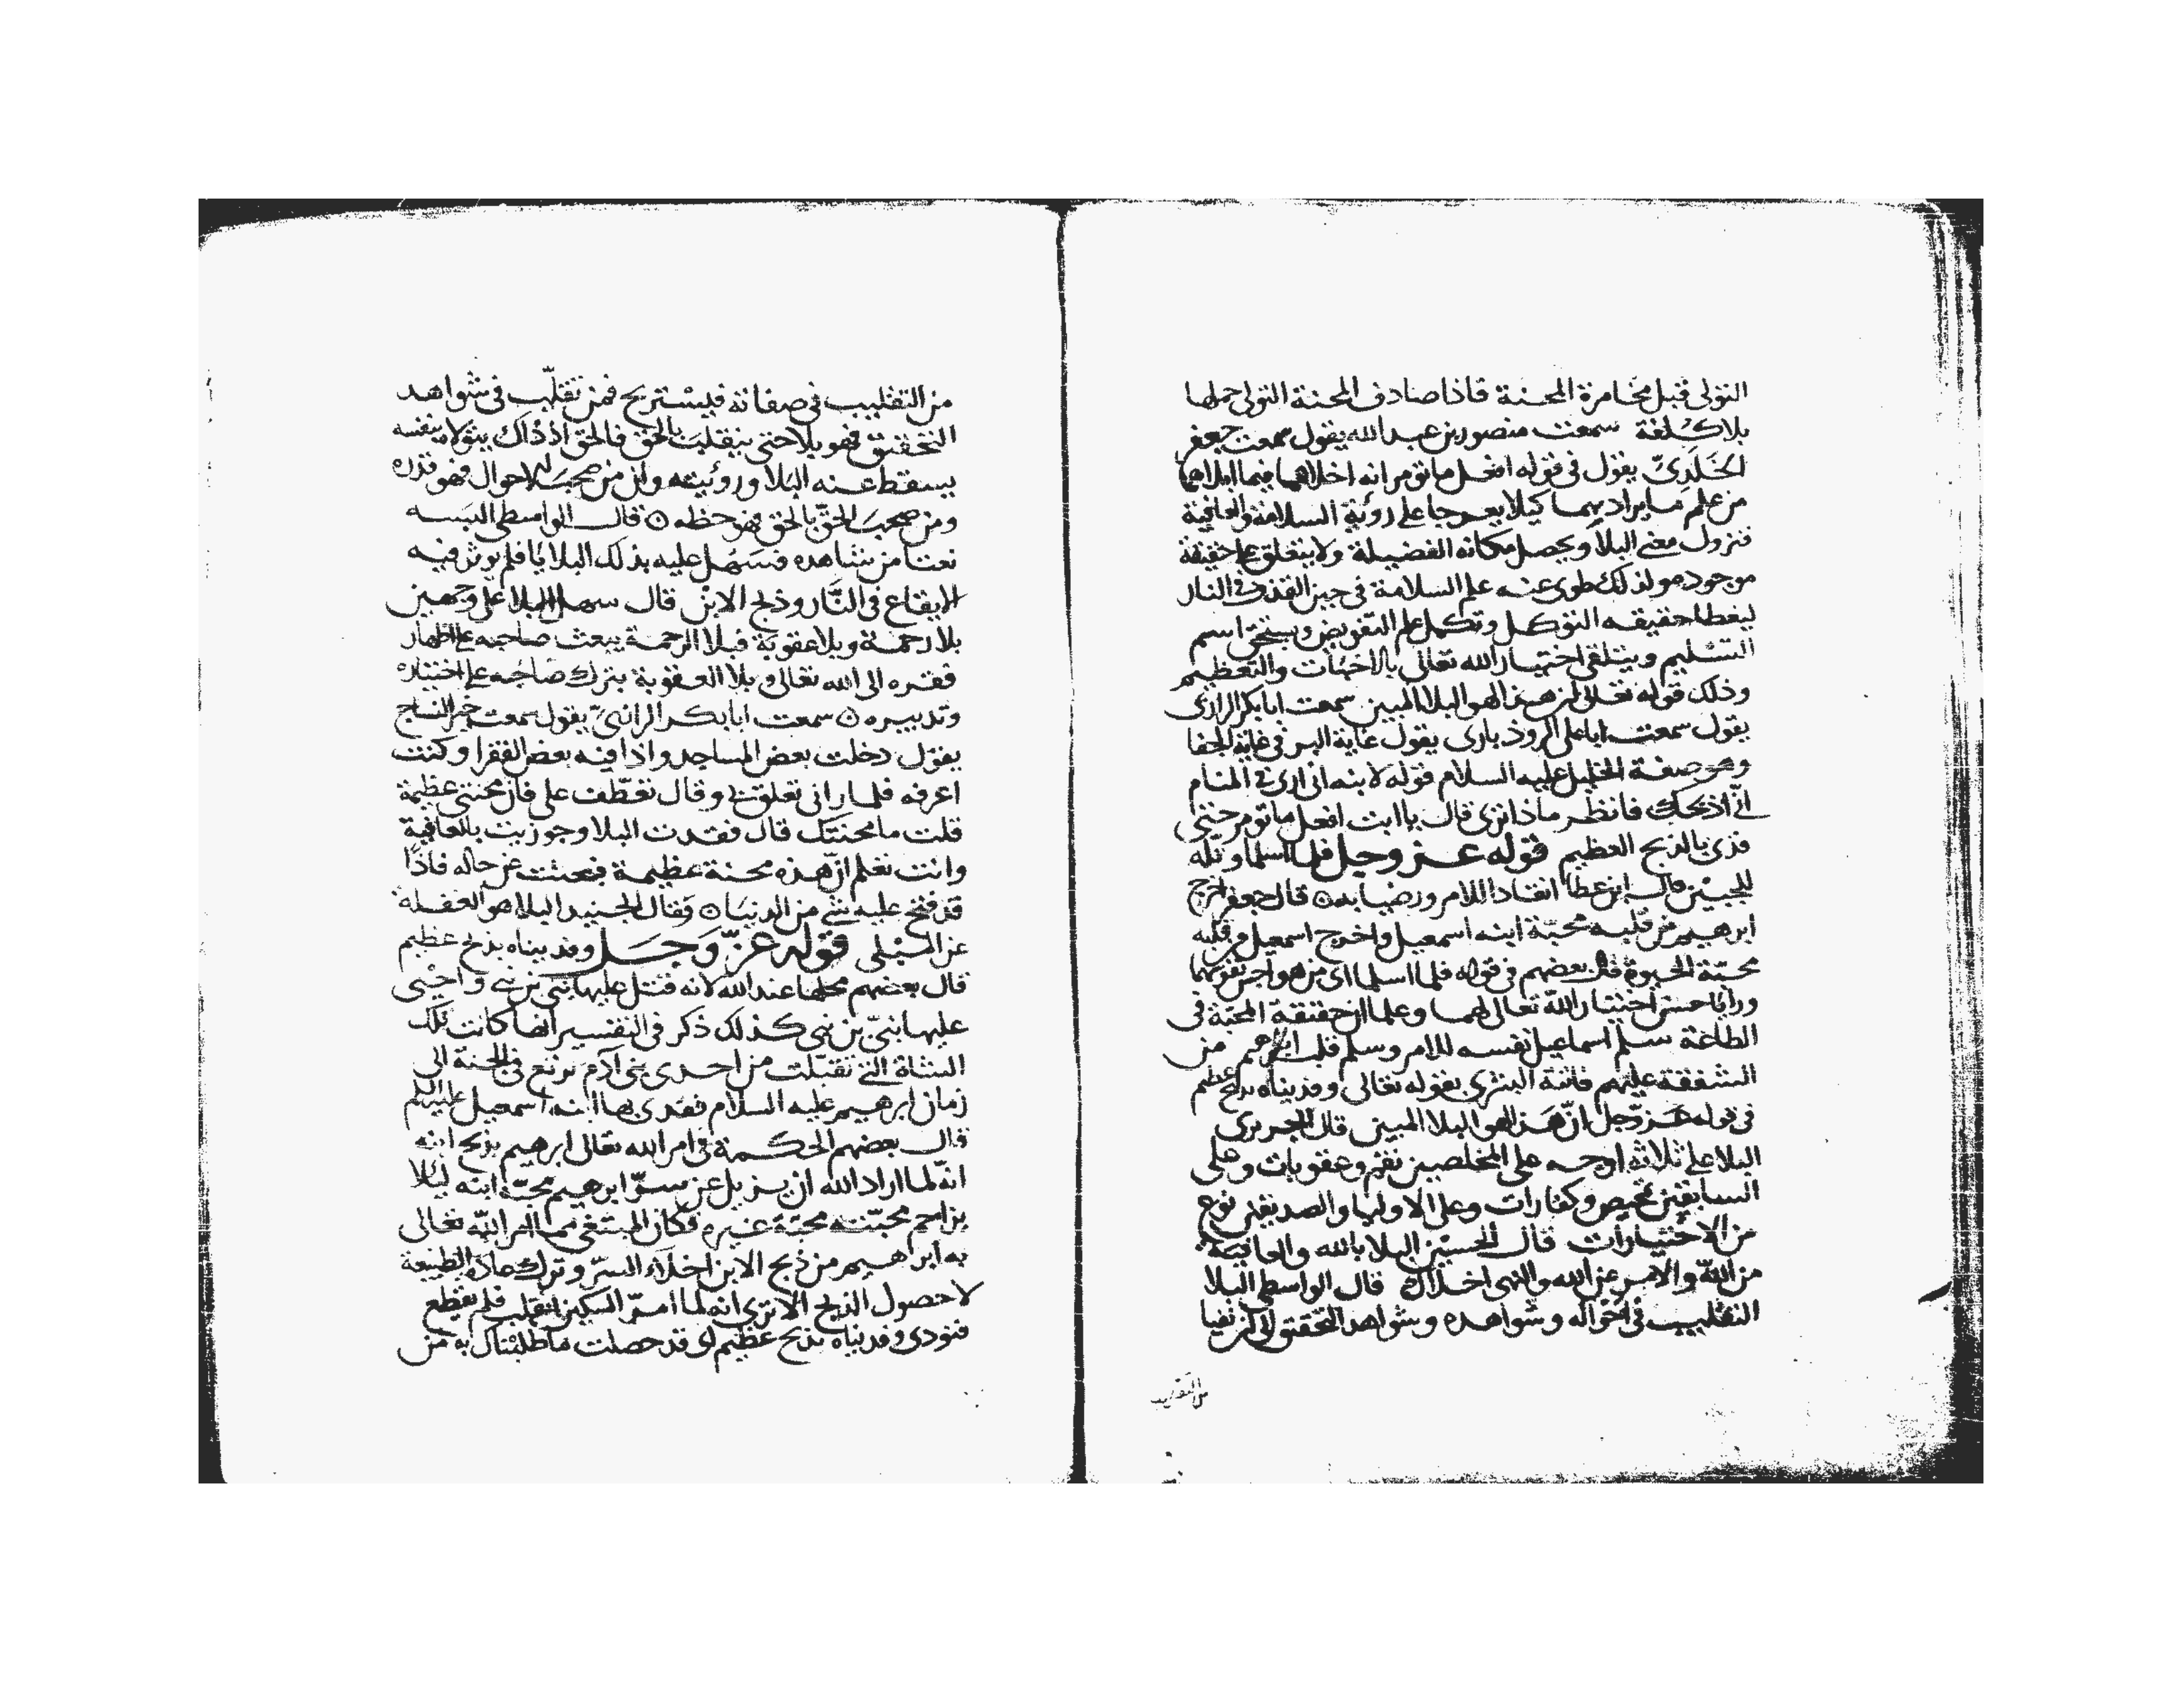 التولى قبل مخامرة المحنة فاذا صادف المحنة التولى حملها
بلا كلفة سمعت منصور بن عبد الله يقول سمعت جعفر
الخلدى يقول فى قوله افعل ما تومر انه اخلاهما فيما ابلاهما
من علم ما يراد بهما كيلا يعرجا على روية السلامة والعافية
فنزول معنى البلا ويحصل مكانه الفضيلة ولا يتعلق على حقيقة
موجود هو لذلك طوى عنه علم السلامة فى حين القذف فى النار
ليعطا حقيقه التوكل وتكمل علم التفويض ويستحق اسم
التسليم ويتلقى اختيار الله تعالى بالاخبات والتعظيم
وذلك قوله تعالى ان هذا لهو البلا المبين سمعت ابا بكر الرازى
يقول سمعت ابا على الروذبارى يقول غاية البر فى غاية الجفا
وهو صفة الخليل عليه السلام قوله لابنه انى ارى فى المنام
انى اذبحك فانظر ماذا ترى قال يا ابت افعل ما تومر حتى
فدى بالذبح العظيم قوله عز وجل فلما اسلما وتله
للجبين قال ابن عطا انقادا للامر ورضيا به ٥ قال جعفر اخرج
ابرهيم من قلبه محبة ابنه اسمعيل واخرج اسمعيل من قلبه
محبة الحيوة قال بعضهم فى قوله فلما اسلما اى من هواجس نفوسهما
ورايا حسن اختيار الله تعالى لهما وعلما ان حقيقة المحبة فى
الطاعة سلم اسماعيل نفسه للامر وسلم قلب ابرهيم من
الشفقة عليهم فاتته البشرى بقوله تعالى وفديناه بذبح عظيم
فى قوله عز وجل ان هذا لهو البلا المبين قال الجريرى
البلا على ثلاثه اوجه على المخلصين نقم وعقوبات وعلى
السابقين تمحيص وكفارات وعلى الاوليا والصديقين نوع
من الاختيارات قال الحسين البلا بالله والعافية
من الله والامر عن الله والنهى اخلال قال الواسطى البلا
التقليب فى احواله وشواهده وشواهد التحقق لمن نفيا
من التقليب
من التقليب فى صفاته فيستريح فمن تقلب فى شواهد
التحقيق فهو بلا حتى ينقلب بالحق فالحق اذ ذاك يتولاه بنفسه
يسقط عنه البلا ورؤيته وان من صحب الاحوال فهو قدره
ومن صحب الحق بالحق فهو حظه ٥ قال الواسطى البسه
نعتا من شاهده فسهل عليه بذلك البلايا فلم يوثر فيه
الايقاع فى النار وذبح الابن قال سهل البلا على وجهين
بلا رحمة وبلا عقوبة فبلا الرحمة يبعث صاحبه على اظهار
فقره الى الله تعالى وبلا العقوبة يترك صاحبه على اختياره
وتدبيره ٥ سمعت ابا بكر الرازى يقول سمعت خير النساج
يقول دخلت بعض المساجد واذا فيه بعض الفقرا وكنت
اعرفه فلما رانى تعلق بى وقال تعطف على فان محنتى عظيمة
قلت ما محنتك قال فقدت البلا وجوزيت بالعافية
وانت تعلم ان هذه محنة عظيمة فبحثت عن حاله فاذا
قد فتح عليه شى من الدنيا ٥ وقال الجنيد البلا هو الغفلة
عن المبلى قوله عز وجل وفديناه بذبح عظيم
قال بعضهم محلها عند الله لانه قتل عليها نبى بن نبى واحيى
عليها نبى بن نبى كذلك ذكر فى التفسير انها كانت تلك
الشاة التى تقبلت من احدى بنى آدم ترتع فى الجنة الى
زمان ابرهيم عليه السلام ففدى بها ابنه اسمعيل عليه السلام
قال بعضهم الحكمة فى امر الله تعالى ابرهيم بذبح ابنه
انه لما اراد الله ان يزيل عن سر ابرهيم محبة ابنه ليلا
يزاحم محبته محبة غيره فكان المبتغى مما امر الله تعالى
به ابرهيم من ذبح الابن اخلاء السر وترك عادة الطبيعة
لا حصول الذبح الا ترى انه لما امر السكين انقلب فلم يقطع
فنودى وفديناه بذبح عظيم اى قد حصلت ما طلبناك به من